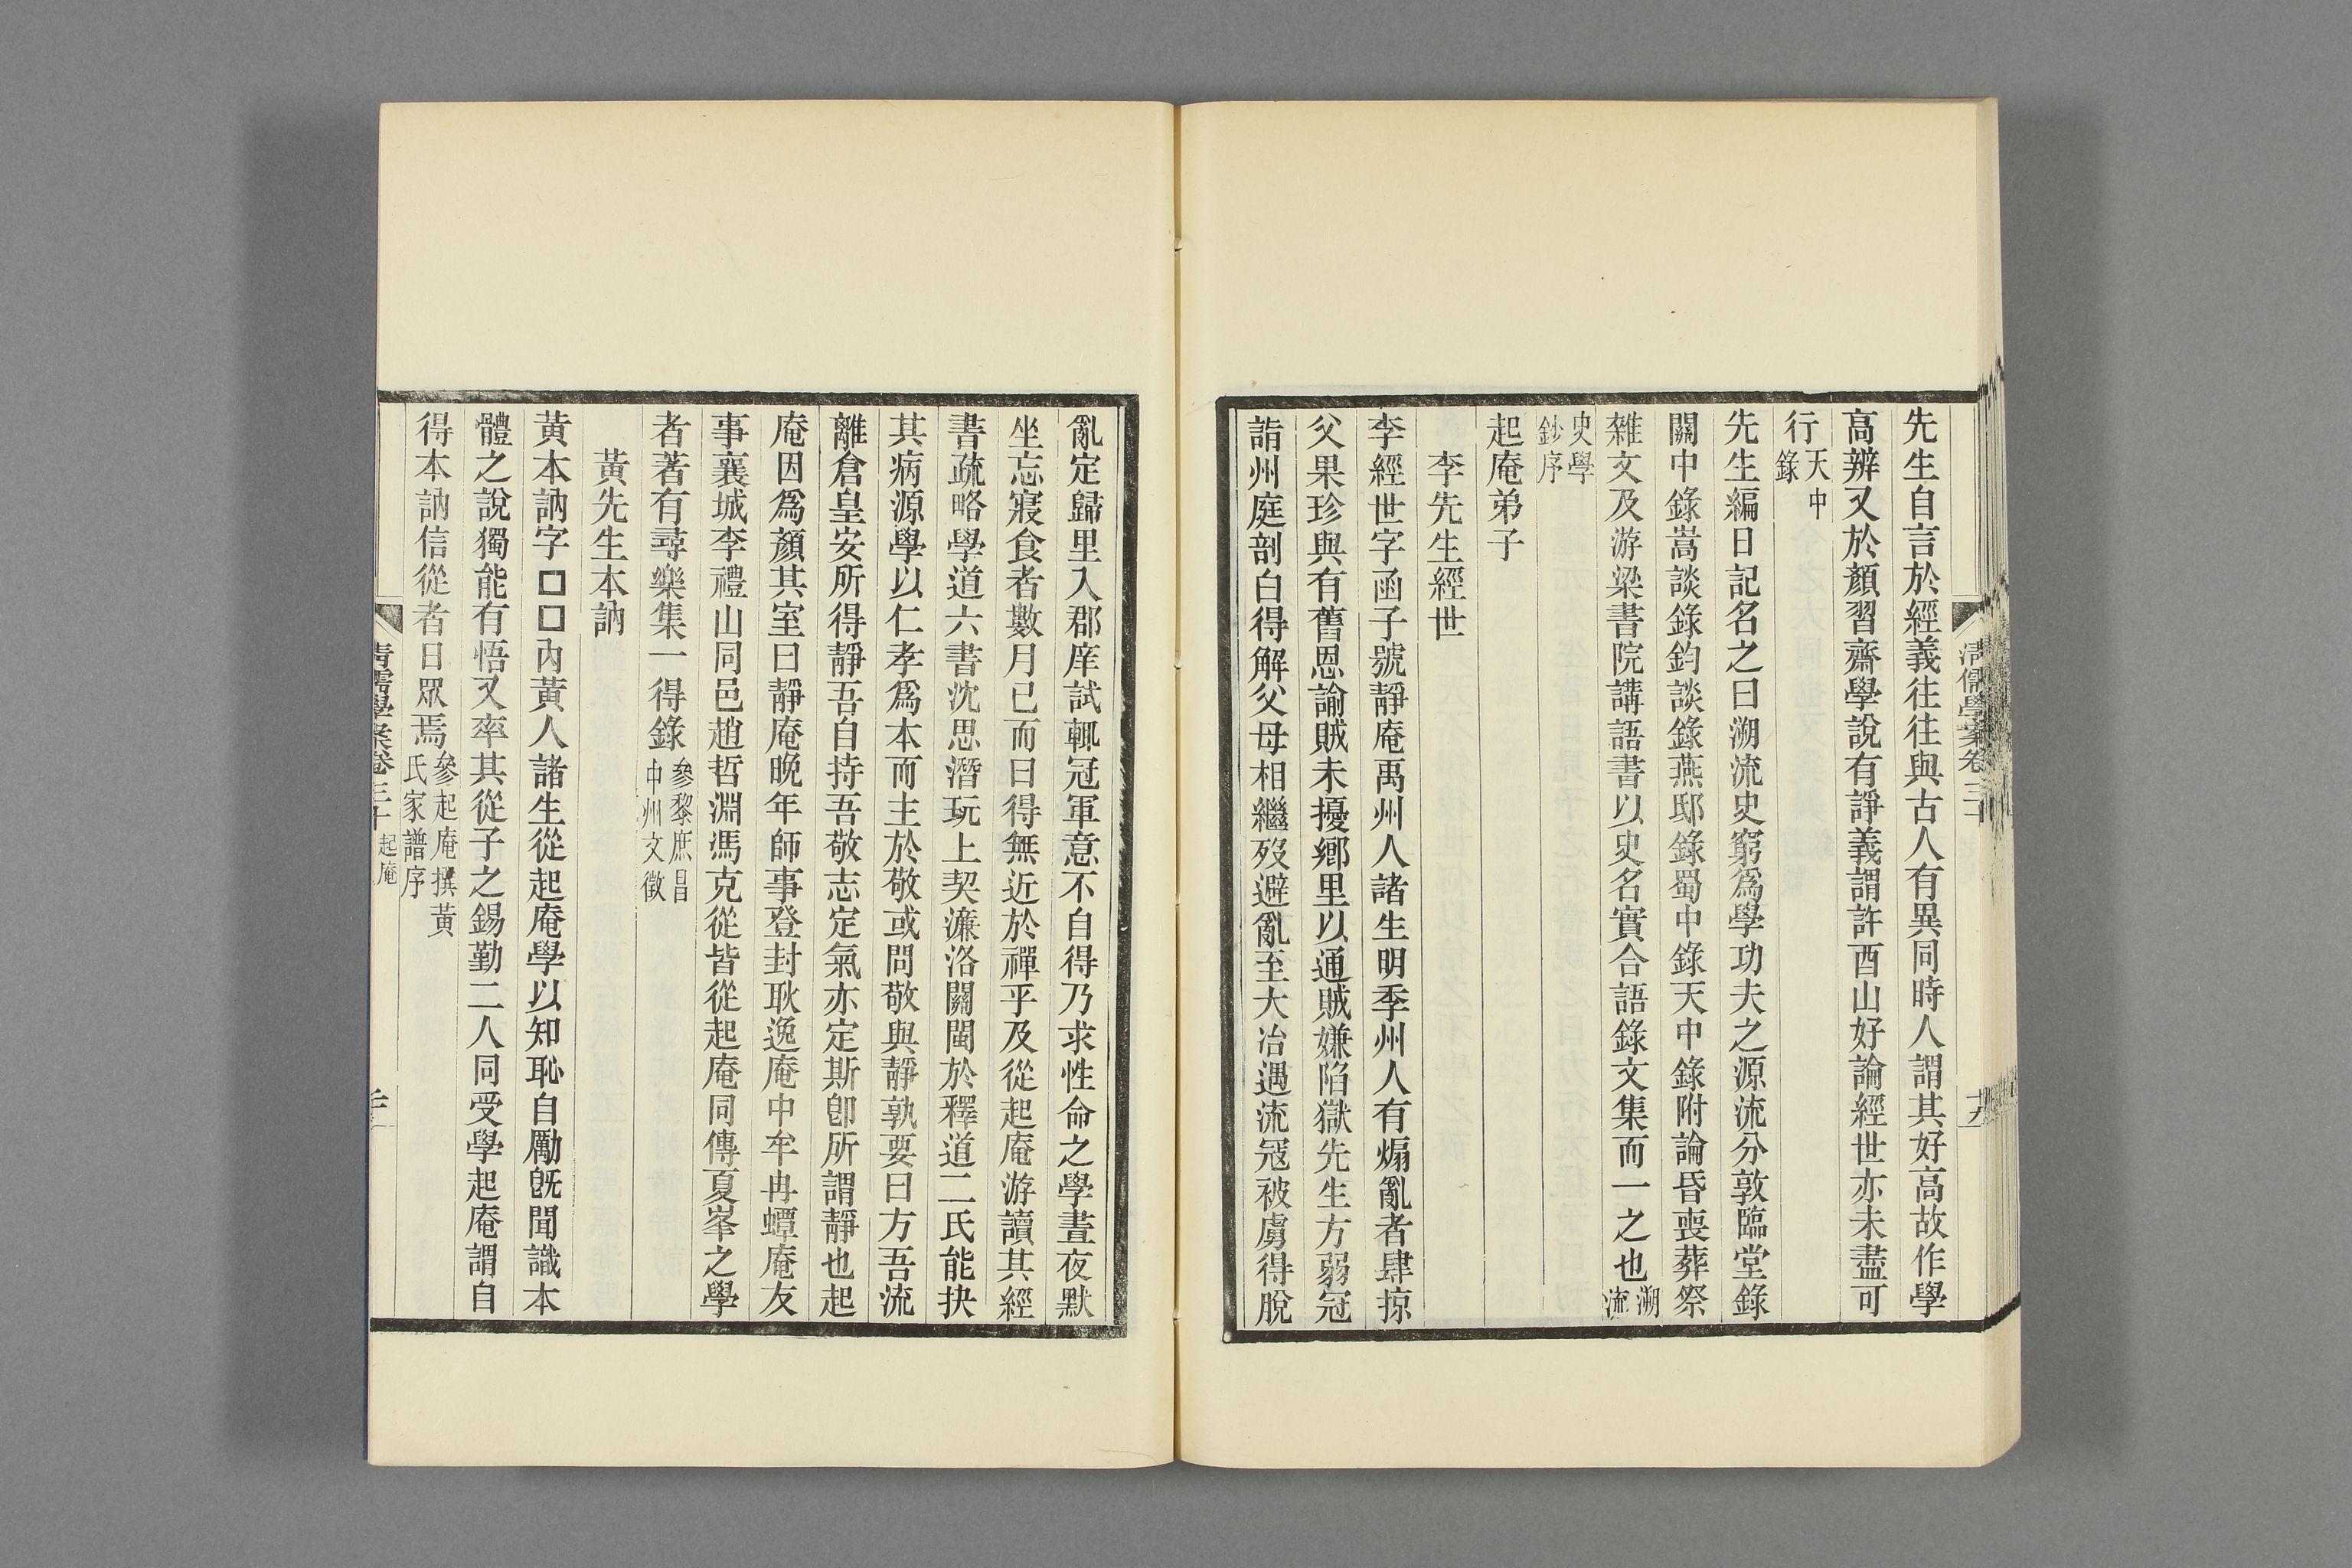 先生自言於經義往往與古人有異同時人謂其好高故作學
高辨又於顏習齋學說有諍義謂許酉山好論經世亦未盡可
行天中錄
先生編日記名之曰溯流史窮爲學功夫之源流分敦臨堂錄
關中錄嵩談錄鈞談錄燕邸錄蜀中錄天中錄附論昏喪葬祭
雜文及游梁書院講語書以史名實合語錄文集而一之也溯流
史學鈔序
起庵弟子
李先生經世
李經世字函子號靜庵禹州人諸生明季州人有煽亂者肆掠
父果珍與有舊恩諭賊未擾鄉里以通賊嫌陷獄先生方弱冠
詣州庭剖白得解父母相繼歿避亂至大冶遇流寇被虜得脫
清儒學案卷三十
十九
亂定歸里入郡庠試輒冠軍意不自得乃求性命之學晝夜默
坐忘寢食者數月已而曰得無近於禪乎及從起庵游讀其經
書疏略學道六書沈思潛玩上契濂洛關閩於釋道二氏能抉
其病源學以仁孝爲本而主於敬或問敬與靜孰要曰方吾流
離倉皇安所得靜吾自持吾敬志定氣亦定斯卽所謂靜也起
庵因爲顏其室曰靜庵晚年師事登封耿逸庵中牟冉蟫庵友
事襄城李禮山同邑趙哲淵馮克從皆從起庵同傳夏峯之學
者著有尋樂集一得錄參黎庶昌中州文徵
黃先生本訥
黃本訥字□□內黃人諸生從起庵學以知恥自勵旣聞識本
體之說獨能有悟又率其從子之錫勤二人同受學起庵謂自
得本訥信從者日眾焉參起庵撰黃氏家譜序
清儒學案卷三十 起庵